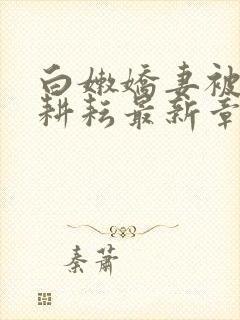 白嫩嬌妻被
耕耘最新章
秦蕭